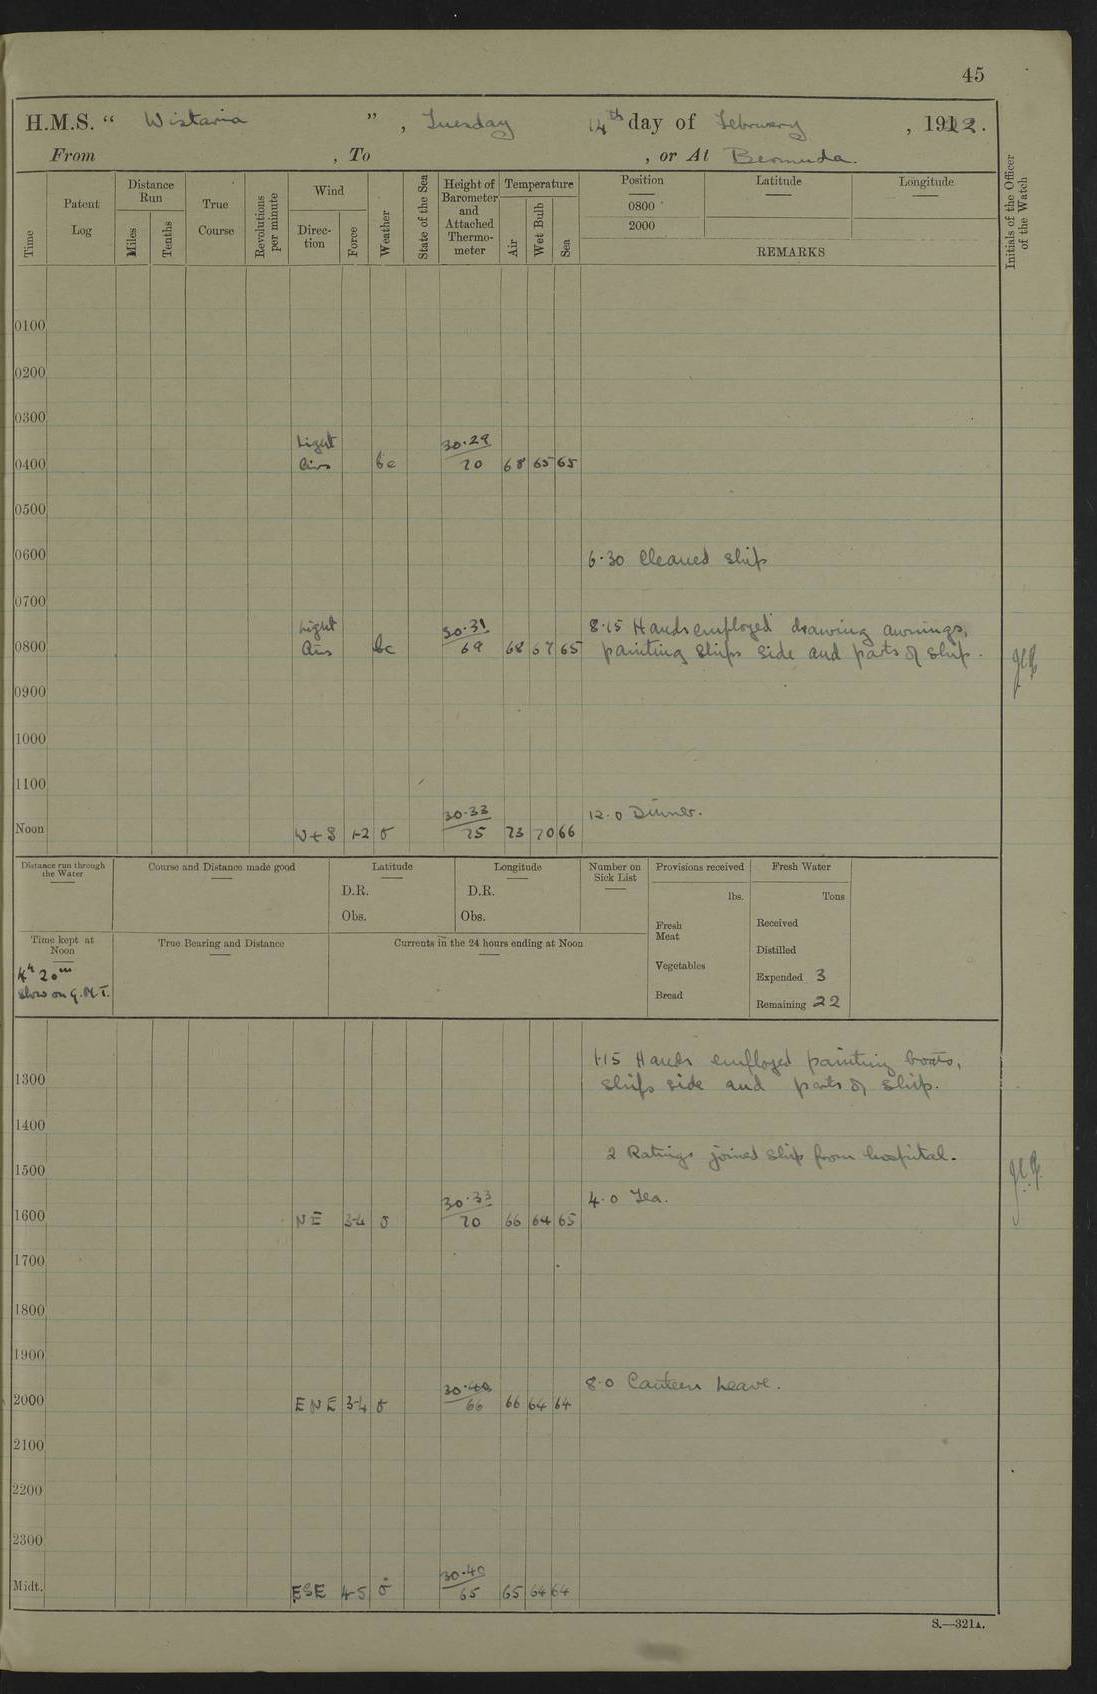 45
H.M.S. “ Wistaria ” , Tuesday 14th day of February , 1922.
From , To , or At Bermuda.
Time
Patent Log
Distance Run
Miles
Tenths
True Course
Revolutions per minute
Wind
Direc-tion
Force
Weather
State of the Sea
Height of Barometer and Attached Thermo-meter
Temperature
Air
Wet Bulb
Sea
Position
0800
2000
Latitude
Longitude
REMARKS
Initials of the Officer of the Watch
0100
0200
0300
Light 30·29
0400 airs bc 70 68 65 65
0500
0600 6·30 Cleaned ship
0700
Light 30·31 8·15 Hands employed drawing awnings,
0800 airs bc 69 68 67 65 painting ships side and parts of ship.
0900
1000
1100
30·33 12·0 Dinner.
Noon W+S 1-2 o 75 73 70 66
Distance run through the Water
Course and Distance made good
Latitude
D.R.
Obs.
Longitude
D.R.
Obs.
Number on Sick List
Provisions received
lbs.
Fresh Meat
Vegetables
Bread
Fresh Water
Tons
Received
Distilled
Expended 3
Remaining 22
Time kept at Noon
4h 20m
slow on G.M.T.
True Bearing and Distance
Currents in the 24 hours ending at Noon
1·15 Hands employed painting boats,
1300 ships side and parts of ship.
1400
2 Ratings joined ship from hospital.
1500
30·33 4·0 Tea.
1600 NE 3-4 o 70 66 64 65
1700
1800
1900
30·40 8·0 Canteen Leave.
2000 ENE 3-4 o 66 66 64 64
2100
2200
2300
30·40
Midt. ESE 4-5 o 65 65 64 64
S.—321A.